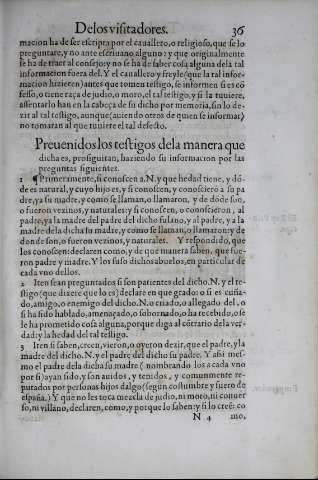 De los visitadores. 36
macion ha de ser escripta por el cauallero, o religioso, que se lo
preguntare, y no ante escriuano alguno: y que originalmente
se ha de traer al consejo: y no se ha de saber cosa alguna dela tal
informacion fuera del. Y el cauallero y freyle (que la tal infor-
macion hizieren) antes que tomen testigo, se informen si es cō
fesso, o tiene raça de judio, o moro, el tal testigo, y si la tuuiere,
assentarlo han en la cabeça de su dicho por memoria, sin lo de-
zir al tal testigo, aunque (auiendo otros de quien se informar)
no tomaran al que tuuiere el tal defecto.
Preuenidos los testigos dela manera que
dicha es, prosiguiran, haziendo su informacion por las
preguntas siguientes.
1 ¶ Primeramente, si conoscen a. N. y que hedad tiene, y dō-
de es natural, y cuyo hijo es, y si conoscen, y conoscierō a su pa
dre, ya su madre, y como se llaman, o llamaron, y de dōde son,
o fueron vezinos, y naturales: y si conoscen, o conoscieron, al
padre, ya la madre del padre del dicho fulano, y al padre, y a la
madre dela dicha su madre, y como se llaman, o llamaron: y de
donde son, o fueron vezinos, y naturales. Y respondido, que
los conoscen: declaren como, y de que manera saben, que fue-
ron padre y madre. Y los suso dichos abuelos, en particular de
cada vno dellos.
2 Iten sean preguntados si son parientes del dicho. N. y el te-
stigo (que dixere que lo es) declare en que grado: o si es cuña-
do, amigo, o enemigo del dicho. N. o criado, o allegado del, o
si ha sido hablado, amenaçado, o sobornado, o ha recebido, o se
le ha prometido cosa alguna, porque diga al cōtrario dela ver-
dad: y la hedad del tal testigo.
3 Iten si saben, creen, vieron, o oyeron dezir, que el padre, y la
madre del dicho. N. y el padre del dicho su padre. Y assi mes-
mo el padre dela dicha su madre (nombrando los a cada vno
por si) ayan sido, y son auidos, y tenidos, y comunmente re-
putados por personas hijos dalgo (segun costumbre y fuero de
españa.) Y que no les toca mezcla de judio, ni moro, ni conuer
so, ni villano, declaren, como, y porque lo saben: y si lo creē: co
N 4 mo,